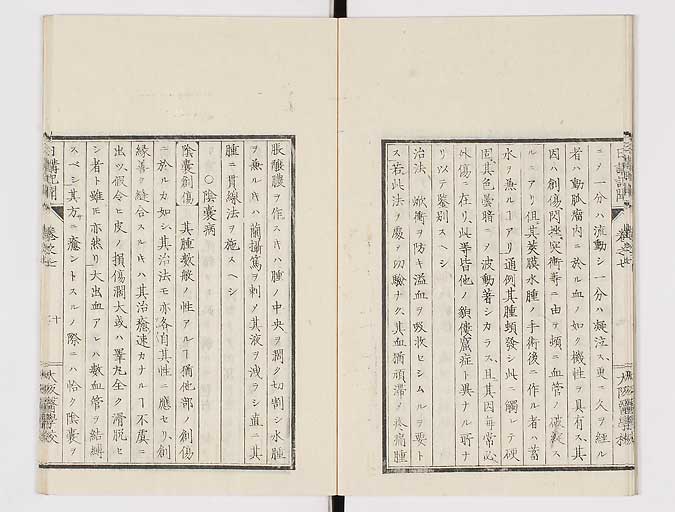 日講記聞 巻之七 大阪醫學校
ニヲ一分ハ流動シ一分ハ凝泣ス、更ニ久ヲ經ル
者ハ動脈瘤内ニ於ル血ノ如ク機性ヲ具有ス、其
因ハ創傷閃挫衝等ニ由ヲ頓ニ血管ノ破裂ス
ルニアリ但其莢膜水腫ノ手術後ニ作ル者ハ蓄
水ヲ兼ルヿアリ通例其腫頓發シ此ニ觸レテ硬
固、其色曇暗ニノ波動著シカラス、且其因毎常必
外傷ニ在リ、此等皆他ノ陰嚢症ト異ナル所ナ
リ以テ鑒別スヘシ
治法 焮衝ヲ防キ溢血ヲ吸收セシムルヲ要ト
ス若此法ヲ處ノ功驗ナク、其血猶頑滞ノ疼痛腫
脹釀膿ヲ作スキハ腫ノ中央ヲ濶ク切割シ水腫
ヲ兼ルキハ蘭攝篤ヲ刺ノ其液ヲ洩ラシ直ニ其
腫ニ貫線法ヲ施スヘシ
〇陰嚢病
陰嚢創傷 其腫数般ノ性アルヿ猶他部ノ創傷
ニ於ルカ如シ、其治法モ亦各自其性ニ應セリ、創
縁善ク縫合スルキハ其治癒速カナルヿ不虞ニ
出ツ假令ヒ皮ノ損傷濶大或ハ睾丸全ク滑脱セ
シ者ト雖𪜈亦然リ大出血アレハ数血管ヲ結縛
スベシ其方ニ癒ントスルノ際ニハ恰ク陰嚢ヲ
日講記聞 巻之七 十 大阪醫學校